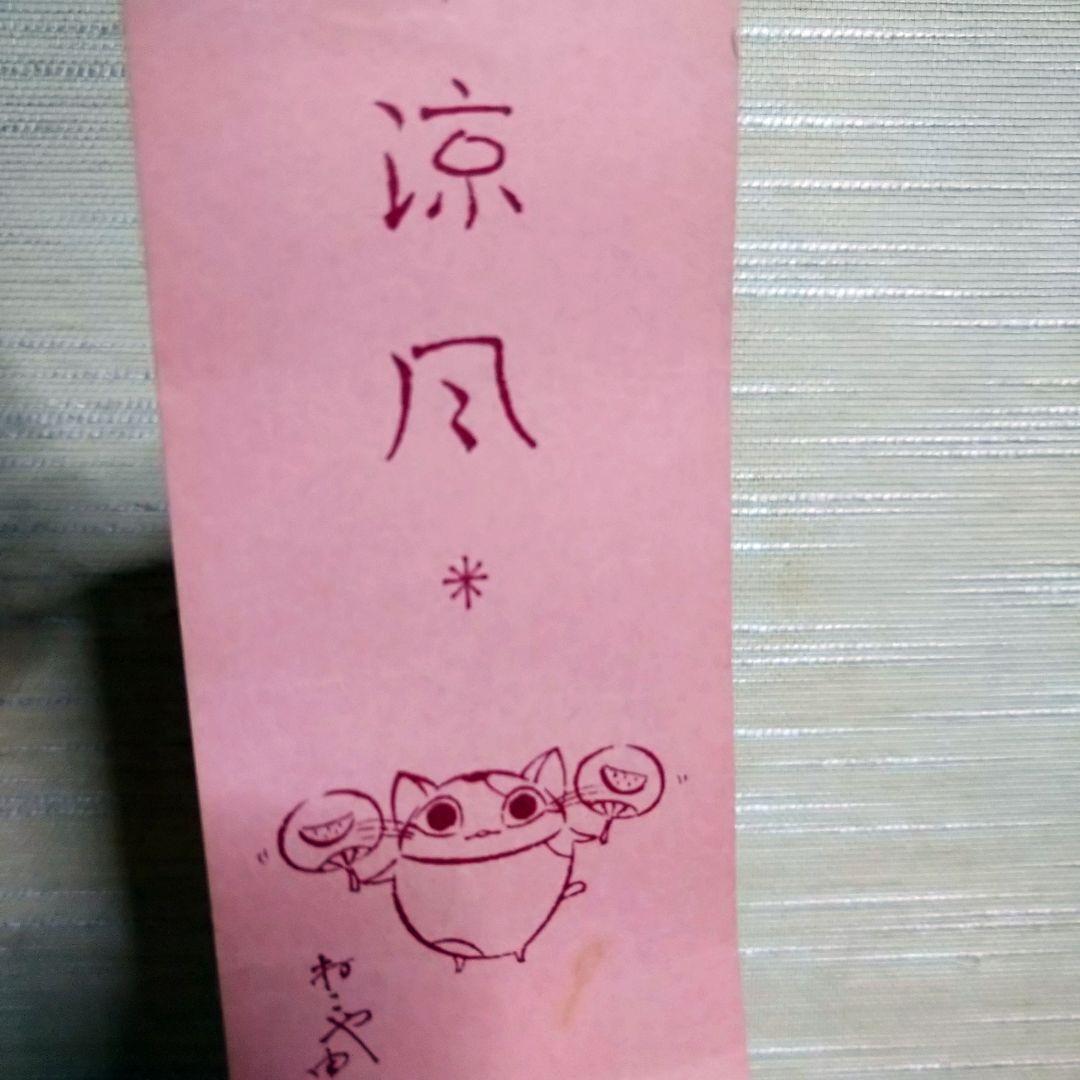 涼風
ねこや